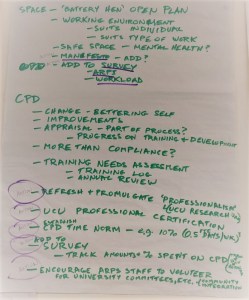 SPACE - 'BATTERY HEN' OPEN PLAN
- WORKING ENVIRONMENT
- SUITS INDIVIDUAL
- SUITS TYPE OF WORK
- SAFE SPACE - MENTAL HEALTH?
- MANIFESTO - ADD?
- ADD TO SURVEY
- ARPS
- WORKLOAD
CPD
- CHANGE - BETTERING SELF
IMPROVEMENTS
- APPRAISAL - PART OF PROCESS?
- PROGRESS ON TRAINING & DEVELOPMENT
- MORE THAN COMPLIANCE?
- TRAINING NEEDS ASSESSMENT
- TRAINING LOG
- ANNUAL REVIEW
- REFRESH + PROMULGATE 'PROFESSIONALISM'
(UCU RESEARCH)
- UCU PROFESSIONAL CERTIFICATION
- CPD TIME NORM - e.g. 10% (0.5 DAYS/WK)
ADD TO
SURVEY
- TRACK AMOUNT % SPENT ON CPD
- ENCOURAGE ARPS STAFF TO VOLUNTEER
FOR UNIVERSITY COMMITTEES, ETC.